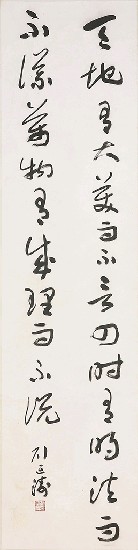 天地有大美而不言四时有明法而
不议万物有成理而不说